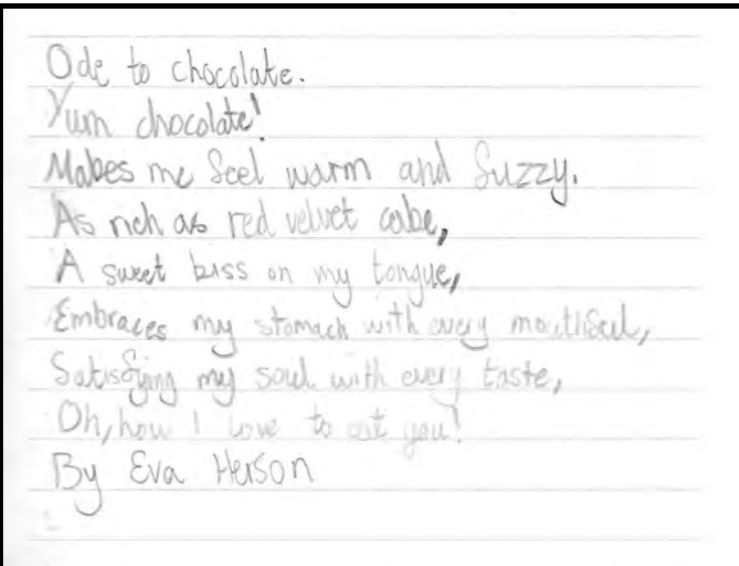 Ode to chocolate.
Yum chocolate!
Makes me feel warm and fuzzy.
As rich as red velvet cake,
A sweet kiss on my tongue,
Embraces my stomach with every mouthful,
Satisfying my soul with every taste,
Oh, how I love to eat you!
By Eva Herson